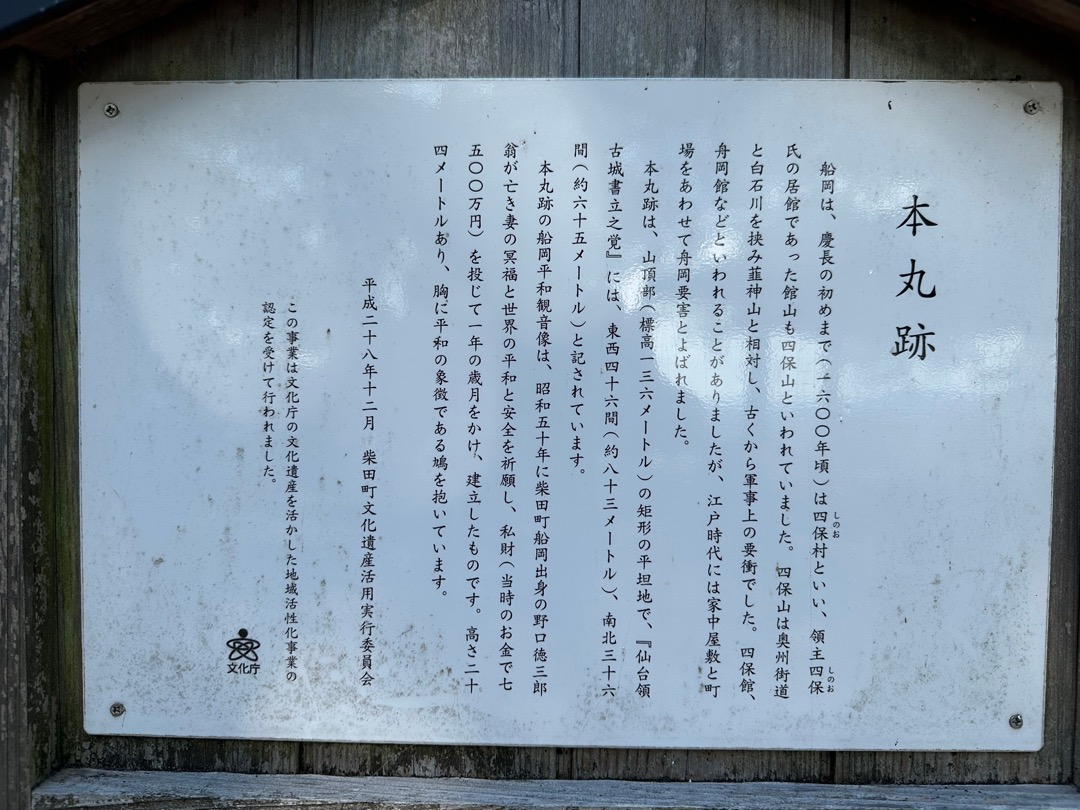 本丸跡
船岡は、慶長の初めまで(一六〇〇年頃)は四保村といい、領主四保
しのお
しのお
氏の居館であった館山も四保山といわれていました。四保山は奥州街道
と白石川を挟み韮神山と相対し、古くから軍事上の要衝でした。四保館、
舟岡館などといわれることがありましたが、江戸時代には家中屋敷と町
場をあわせて舟岡要害とよばれました。
本丸跡は、山頂部(標高一三六メートル)の矩形の平坦地で、『仙台領
古城書立之覚』には、東西四十六間(約八十三メートル)、南北三十六
間(約六十五メートル)と記されています。
本丸跡の船岡平和観音像は、昭和五十年に柴田町船岡出身の野口徳三郎
翁が亡き妻の冥福と世界の平和と安全を祈願し、私財(当時のお金で七
五〇〇万円)を投じて一年の歳月をかけ、建立したものです。高さ二十
四メートルあり、胸に平和の象徴である鳩を抱いています。
平成二十八年十二月 柴田町文化遺産活用実行委員会
この事業は文化庁の文化遺産を活かした地域活性化事業の
認定を受けて行われました。
文化庁